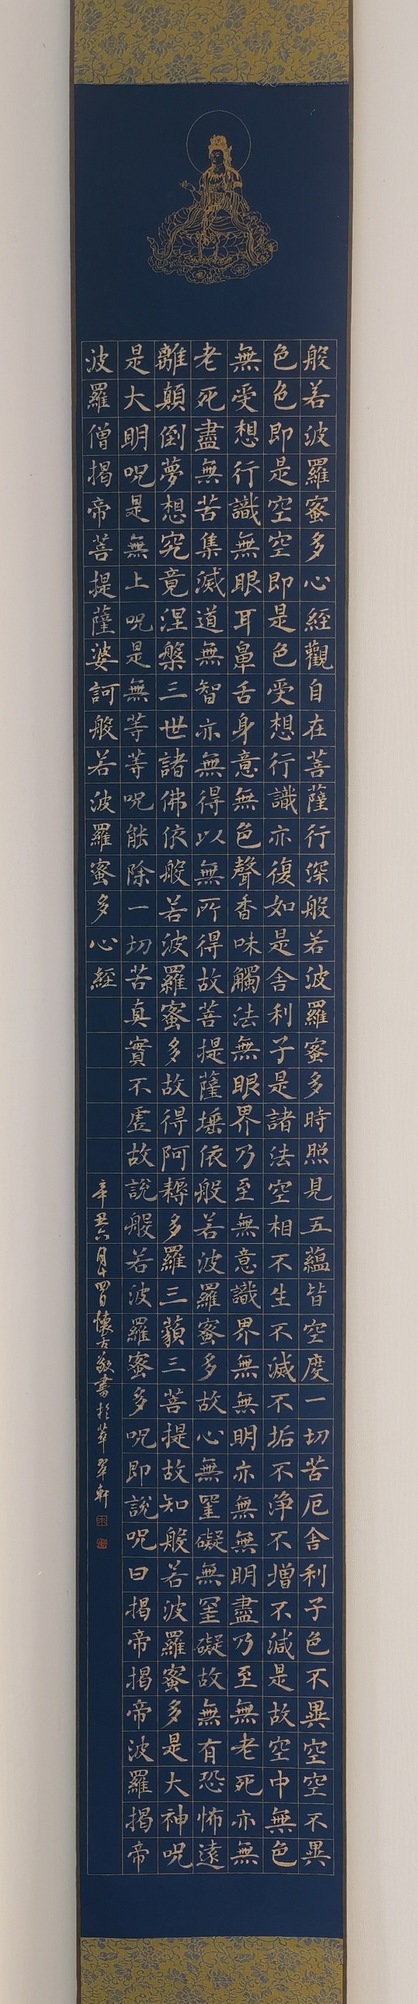 般若波羅蜜多心經觀自在菩薩行深般若波羅蜜多時照見五蘊皆空度一切苦厄舍利子色不異空空不異
色色即是空空即是色受想行識亦復如是舍利子是諸法空相不生不滅不垢不淨不增不減是故空中無色
無受想行識無眼耳鼻舌身意無色聲香味觸法無眼界乃至無意識界無無明亦無無明盡乃至無老死亦無
老死盡無苦集滅道無智亦無得以無所得故菩提薩埵依般若波羅蜜多故心無罣礙無罣礙故無有恐怖遠
離顛倒夢想究竟涅槃三世諸佛依般若波羅蜜多故得阿耨多羅三藐三菩提故知般若波羅蜜多是大神呪
是大明呪是無上呪是無等等呪能除一切苦真實不虛故說般若波羅蜜多呪即說呪曰揭帝揭帝波羅揭帝
波羅僧揭帝菩提薩婆訶般若波羅蜜多心經
辛丑六月十四日懷古敬書於華翠軒